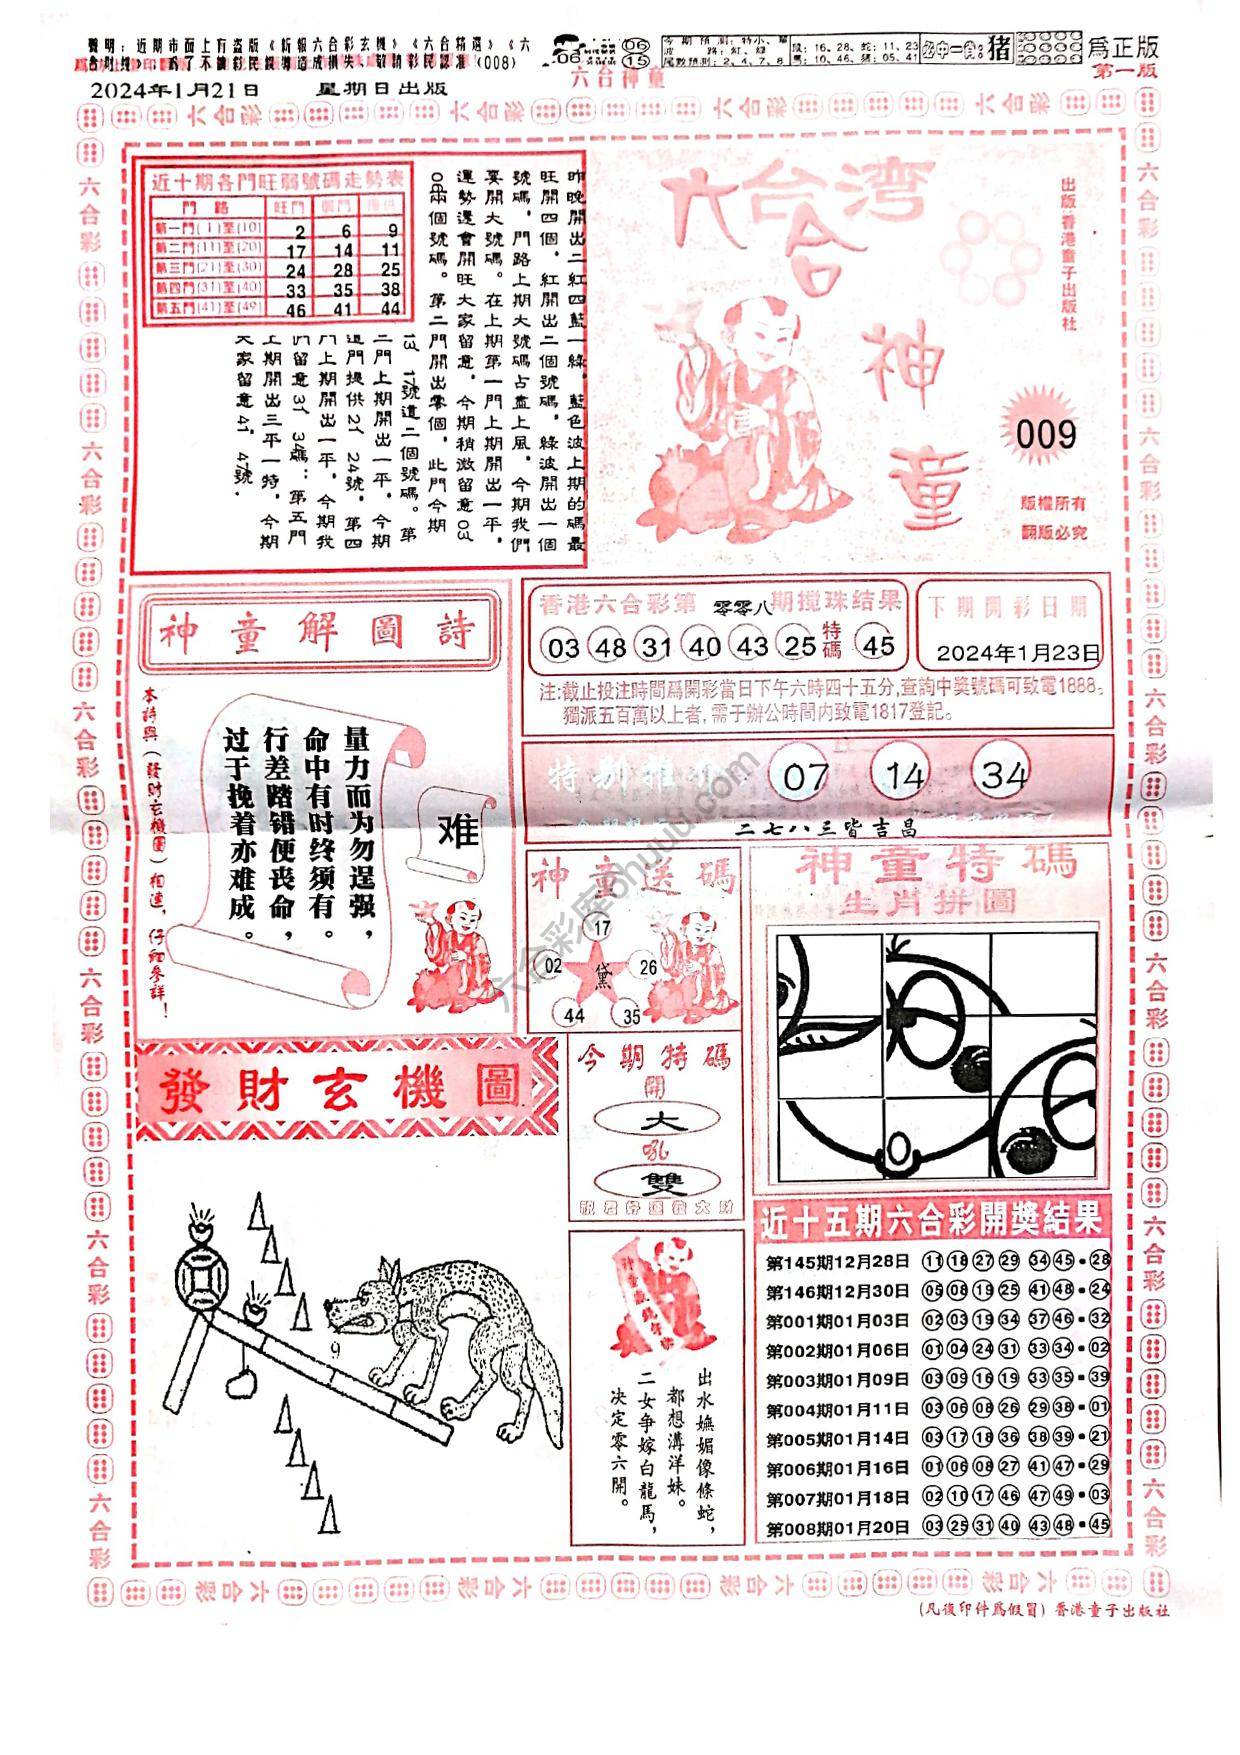 聲明：近期市面上有盜版《新報六合彩玄機》《六合精選》《六
（008）
06
15
今期預測：特小、單
波路：紅、綠
尾數預測：2、4、7、8
鼠：16、28、蛇：11、23
馬：10、46、猪：05、41
必中一肖：猪
爲正版
第一版
2024年1月21日 星期日出版
六台神童
近十期各門旺弱號碼走勢表
門路 旺門
第一門(1)至(10) 2 6 9
第二門(11)至(20) 17 14 11
第三門(21)至(30) 24 28 25
第四門(31)至(40) 33 35 38
第五門(41)至(49) 46 41 44
昨晚開出二紅四藍一綠，藍色波上期的碼最
旺開四個，紅開出二個號碼，綠波開出一個
號碼，門路上期大號碼占盡上風，今期我們
要開大號碼。在上期第一門上期開出一平，
運勢還會開旺大家留意，今期稍微留意03
08兩個號碼。第二門開出零個，此門今期
13、17號這二個號碼。第
三門上期開出一平，今期
這門提供21、24號，第四
門上期開出一平，今期我
們留意31、34碼；第五門
上期開出三平一特，今期
大家留意41、47號.
六合台湾
神童
出版香港童子出版社
009
版權所有
翻版必究
神童解圖詩
本詩與(發財玄機圖)相連，仔細參詳！
量力而为勿逞强，
命中有时终须有。
行差踏错便丧命，
过于挽着亦难成。
难
香港六合彩第零零八期搅珠结果
03 48 31 40 43 25 特碼 45
下期開彩日期
2024年1月23日
注:截止投注時間爲開彩當日下午六時四十五分,查詢中獎號碼可致電1888。
獨派五百萬以上者,需于辦公時間内致電1817登記。
07 14 34
二七八三皆吉昌
神童送碼
17
02 黛 26
44 35
神童特碼
生肖拼圖
今期特碼
開
大
吼
雙
祝君好運發大財
發財玄機圖
9
出水嫵媚像條蛇，
都想溝洋妹。
二女争嫁白龍馬，
决定零六開。
近十五期六合彩開獎結果
第145期12月28日 11 18 27 29 34 45 · 28
第146期12月30日 05 08 19 25 41 48 · 24
第001期01月03日 02 03 19 34 37 46 · 32
第002期01月06日 01 04 24 31 33 34 · 02
第003期01月09日 03 09 16 19 33 35 · 39
第004期01月11日 03 06 08 26 29 38 · 01
第005期01月14日 03 17 18 36 38 39 · 21
第006期01月16日 01 06 08 27 41 47 · 29
第007期01月18日 02 10 17 46 47 49 · 03
第008期01月20日 03 25 31 40 43 48 · 45
(凡復印件爲假冒) 香港童子出版社